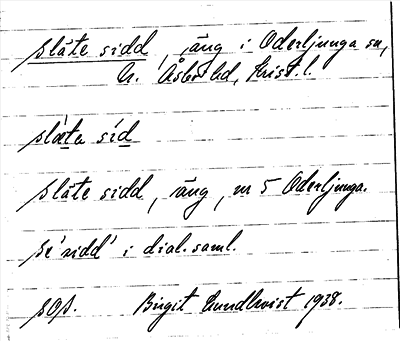 släte sidd, äng i Oderljunga sn,
N. Åsbo hd, Krist. l.
slǽte síd
släte sidd, äng, nr 5 Oderljunga.
se 'sidd' i dial. saml.
sOp. Birgit Lundkvist 1938.